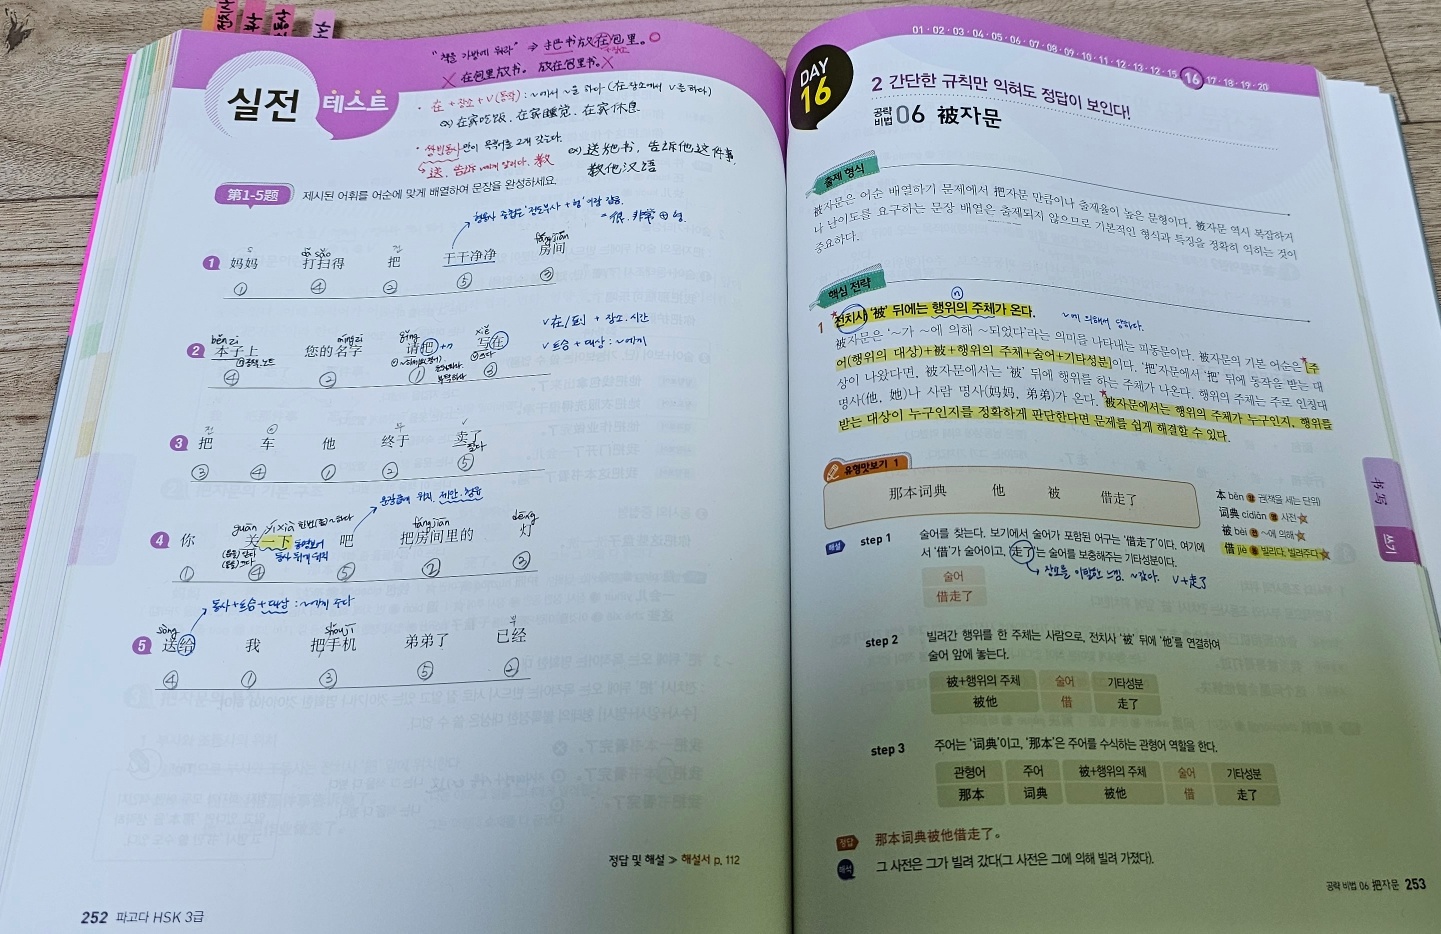 "책을 가방에 넣어라" ⇒ 把书放在包里。O
X 在包里放书。 放在包里书。X
실전
테스트
· 在 + 장소 + V(동작) : ~에서 ~을 하다 (在 장소에서 V를 하다)
ex) 在家吃饭. 在家睡觉. 在家休息
送. 告诉 教
ex) 送她书, 告诉他这件事,
教他汉语
第1-5题 제시된 어휘를 어순에 맞게 배열하여 문장을 완성하세요.
很. 非常 ⊕ 형.
dǎ sǎo
fángjiān
1 妈妈 打扫得 把 干干净净 房间
① ④ ② ⑤ ③
∨在/到 + 장소.시간
běn zi míngzi qǐng xiě
2 本子上 您的名字 请把 写在
∨ 给 + 대상 : ~에게
④ ② ① ③
3 把 车 他 终于 卖了
팔다
③ ④ ① ② ⑤
guān yíxià fángjiān dēng
4 你 关一下 吧 把房间里的 灯
① ④ ⑤ ② ③
동사+给+대상 : ~에게 주다
sòng shǒujī
5 送给 我 把手机 弟弟了 已经
④ ① ③ ⑤ ②
정답 및 해설 ≫ 해설서 p. 112
252 파고다 HSK 3급
01·02·03·04·05·06·07·08·09·10·11·12·13·12·15 16 17·18·19·20
DAY
16
2 간단한 규칙만 익혀도 정답이 보인다!
공략
비법 06 被자문
출제 형식
被자문은 어순 배열하기 문제에서 把자문 만큼이나 출제율이 높은 문형이다. 被자문 역시 복잡하게
나 난이도를 요구하는 문장 배열은 출제되지 않으므로 기본적인 형식과 특징을 정확히 익히는 것이
중요하다.
핵심 전략
1 전치사 '被' 뒤에는 행위의 주체가 온다.
~에 의해서 당하다.
被자문은 '~가 ~에 의해 ~되었다'라는 의미를 나타내는 피동문이다. 被자문의 기본 어순은 [주
어(행위의 대상)+被+행위의 주체+술어+기타성분]이다. '把'자문에서 '把' 뒤에 동작을 받는 대
상이 나왔다면, 被자문에서는 '被' 뒤에 행위를 하는 주체가 나온다. 행위의 주체는 주로 인칭대
명사(他, 她)나 사람 명사(妈妈, 弟弟)가 온다. 被자문에서는 행위의 주체가 누구인지, 행위를
받는 대상이 누구인지를 정확하게 판단한다면 문제를 쉽게 해결할 수 있다.
유형맛보기 1
那本词典 他 被 借走了
本 běn 양 권(책을 세는 단위)
词典 cídiǎn 명 사전
被 bèi 전 ~에 의해
借 jiè 동 빌리다, 빌려주다
해설 step 1 술어를 찾는다. 보기에서 술어가 포함된 어구는 '借走了'이다. 여기에
서 '借'가 술어이고, 走了는 술어를 보충해주는 기타성분이다.
장소를 이탈한 느낌. ~갔다. V+走了
술어
借走了
step 2 빌려간 행위를 한 주체는 사람으로, 전치사 '被' 뒤에 '他'를 연결하여
술어 앞에 놓는다.
被+행위의 주체 술어 기타성분
被他 借 走了
step 3 주어는 '词典'이고, '那本'은 주어를 수식하는 관형어 역할을 한다.
관형어 주어 被+행위의 주체 술어 기타성분
那本 词典 被他 借 走了
정답 那本词典被他借走了。
해석 그 사전은 그가 빌려 갔다(그 사전은 그에 의해 빌려 가졌다).
书写
쓰기
공략 비법 06 把자문 253